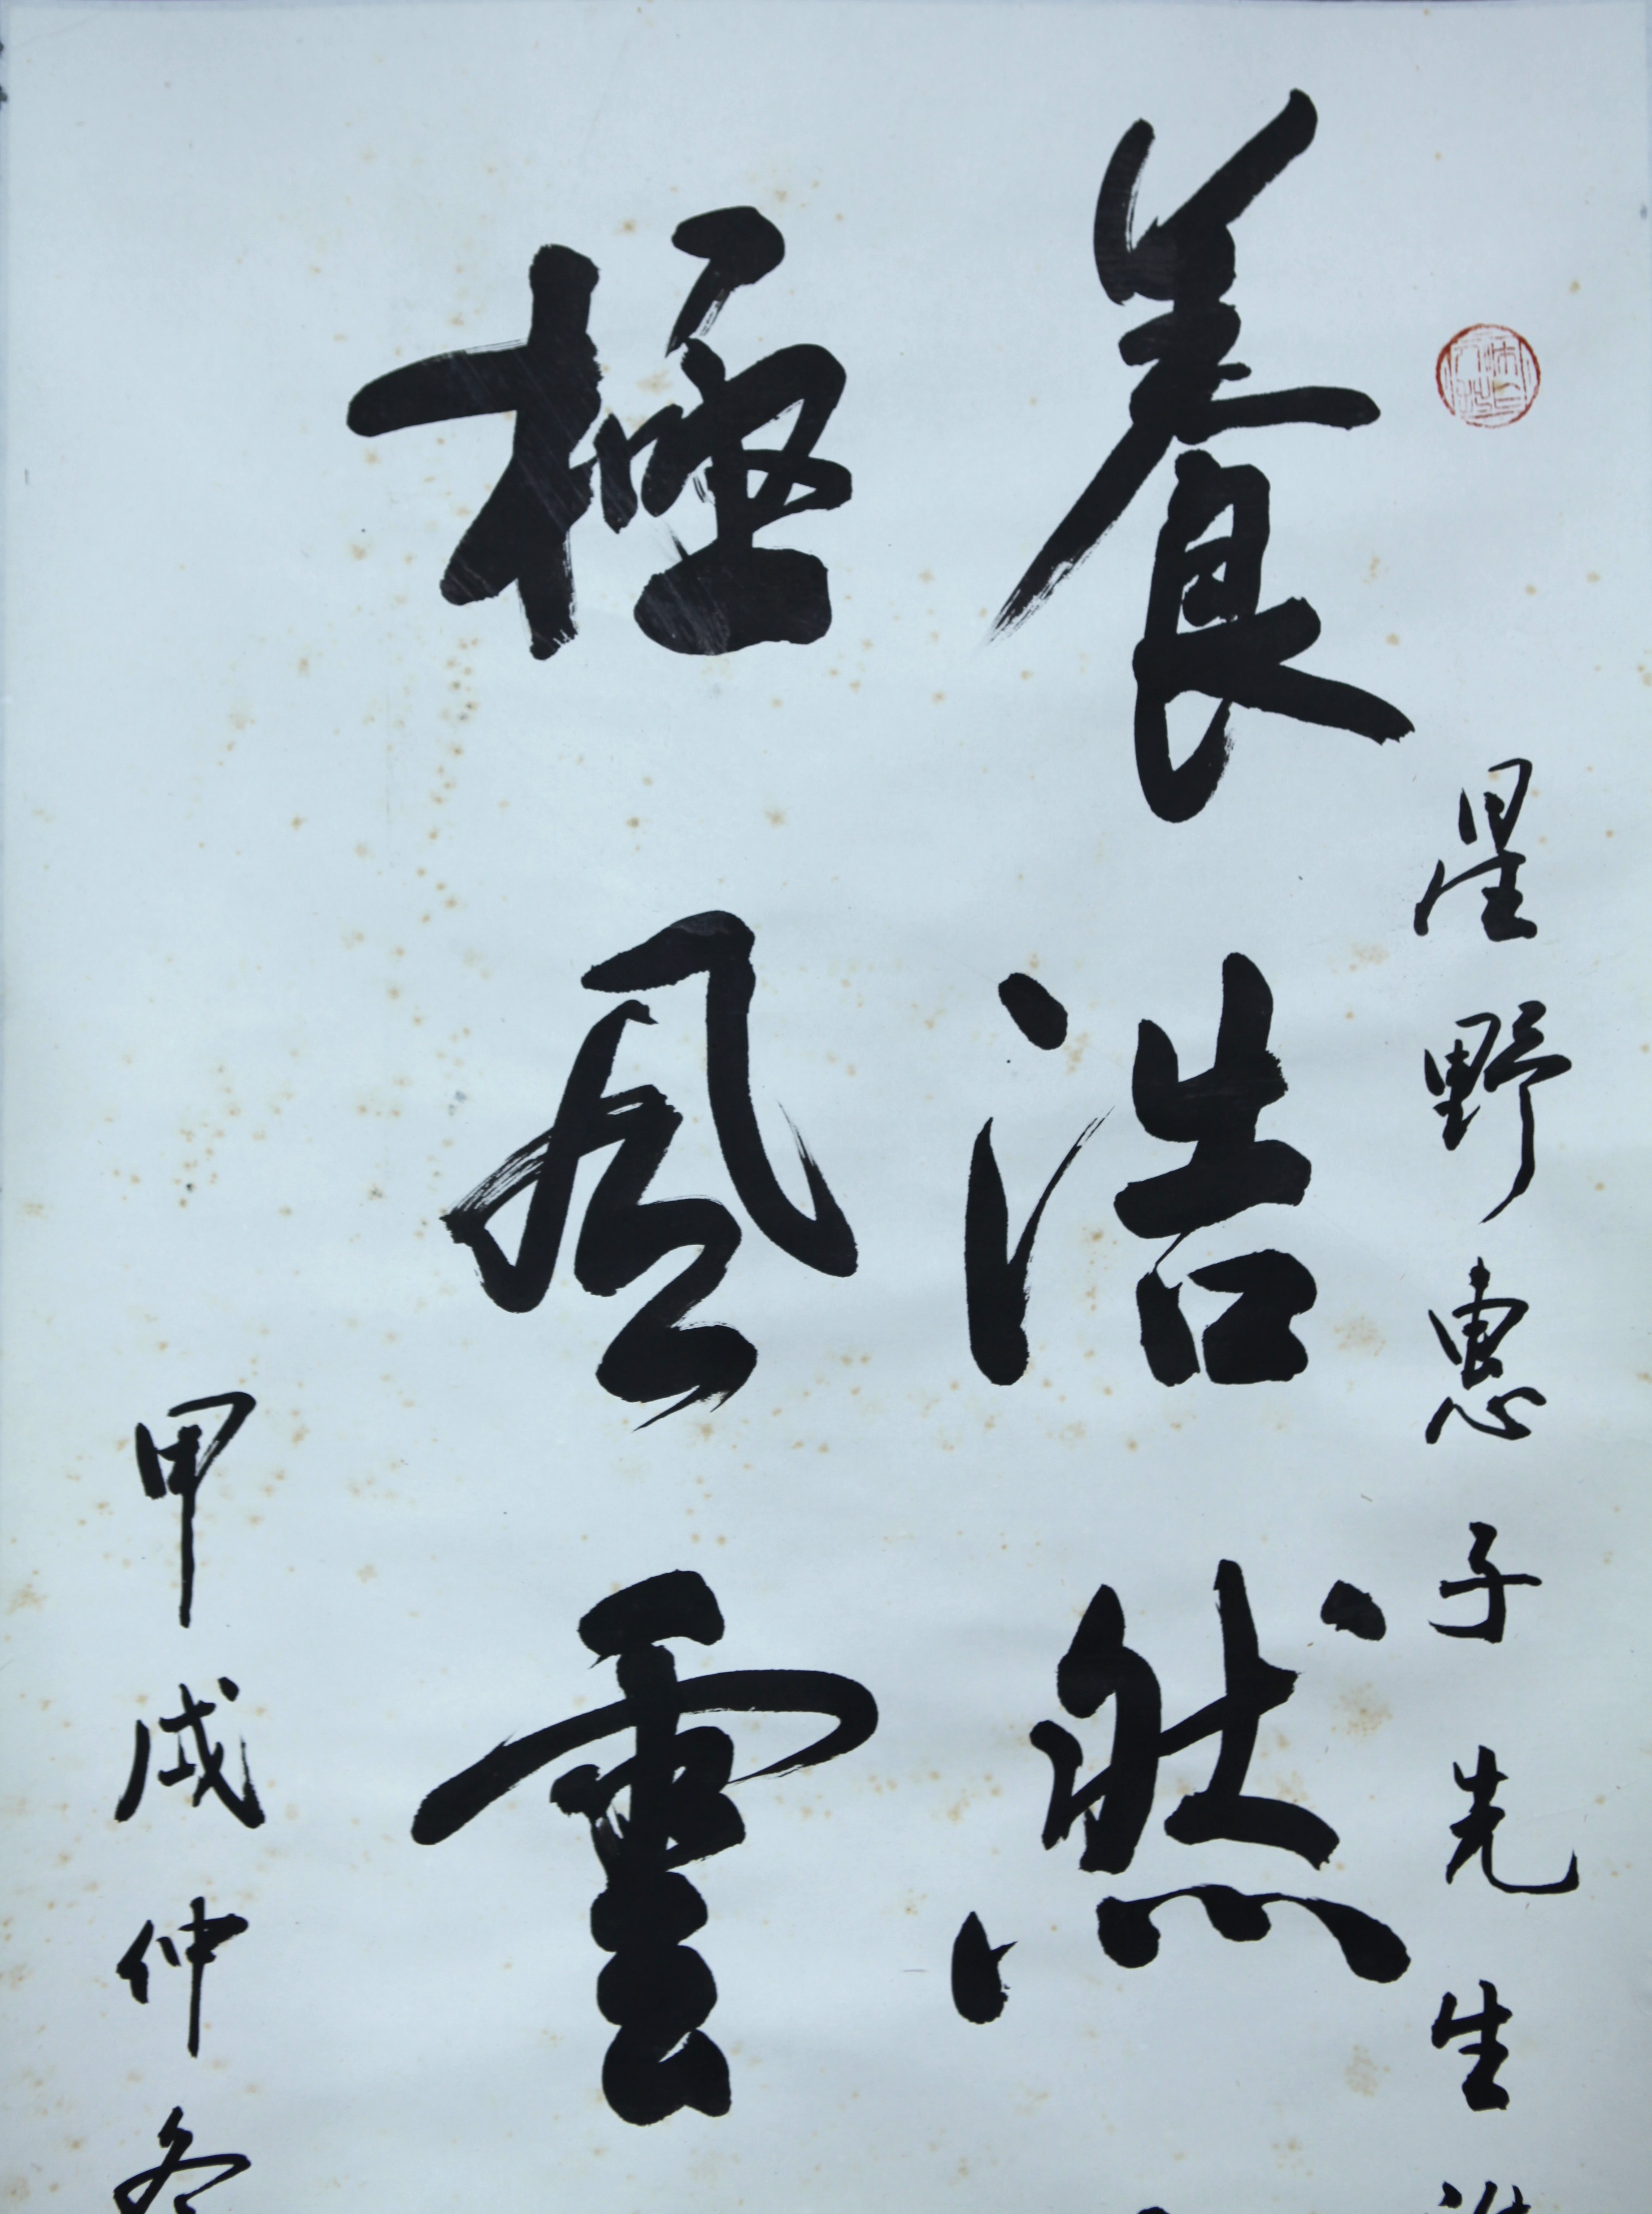 星野惠子先生
養浩然
極風雲
甲戌仲冬